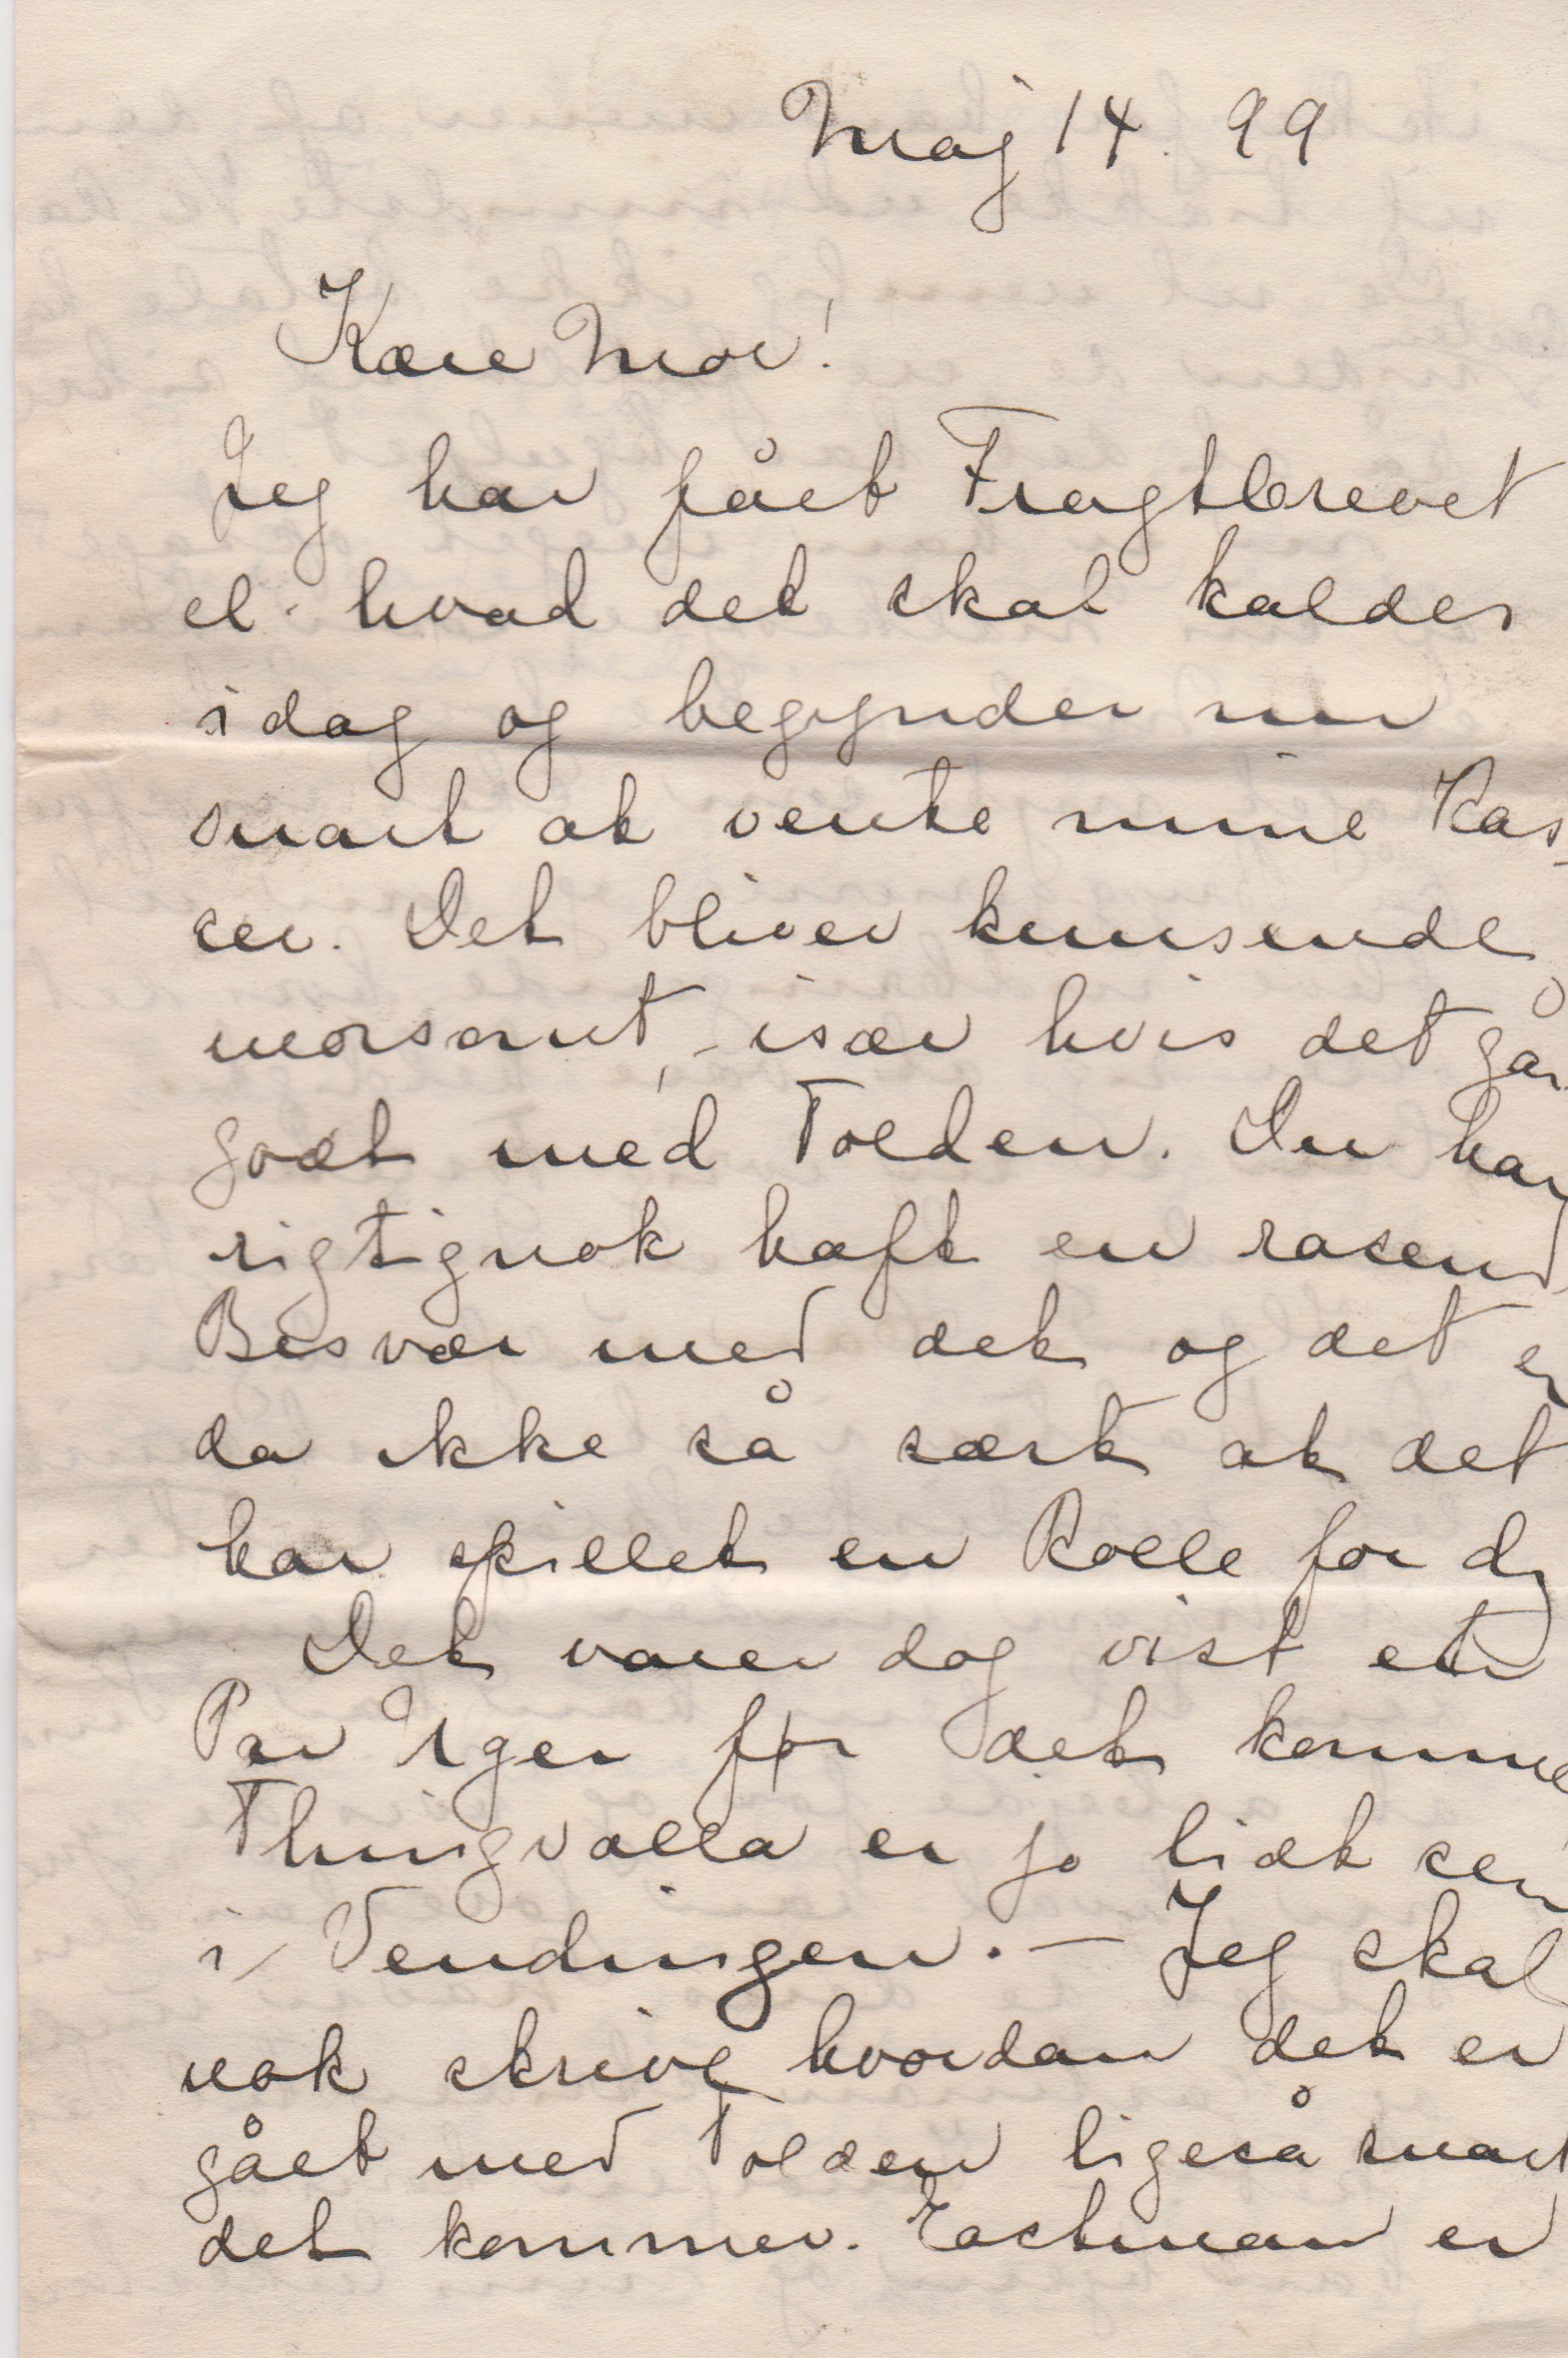 Maj 14. 99
Kære Mor!
Jeg har fået Fragtbrevet
el. hvad det skal kaldes
idag og begynder nu
snart at vente mine Kas-
ser. Det bliver knusende
morsomt, - især hvis det går
godt med Tolden. Du har
rigtignok haft en rasend
Besvær med det og det er
da ikke så sært at det
har spillet en Rolle for dig
Det varer dog vist et
Par Uger før det komme
Thingvalla er jo lidt sen
i Vendingen. - Jeg skal
nok skrive hvordan det er
gået med Tolden ligeså snart
det kommer. Eastman er